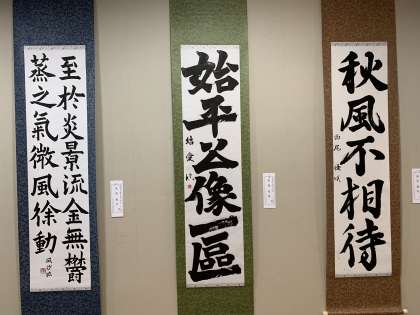 至於炎景流金無鬱
蒸之氣微風徐動
始平公像一區
秋風不相待